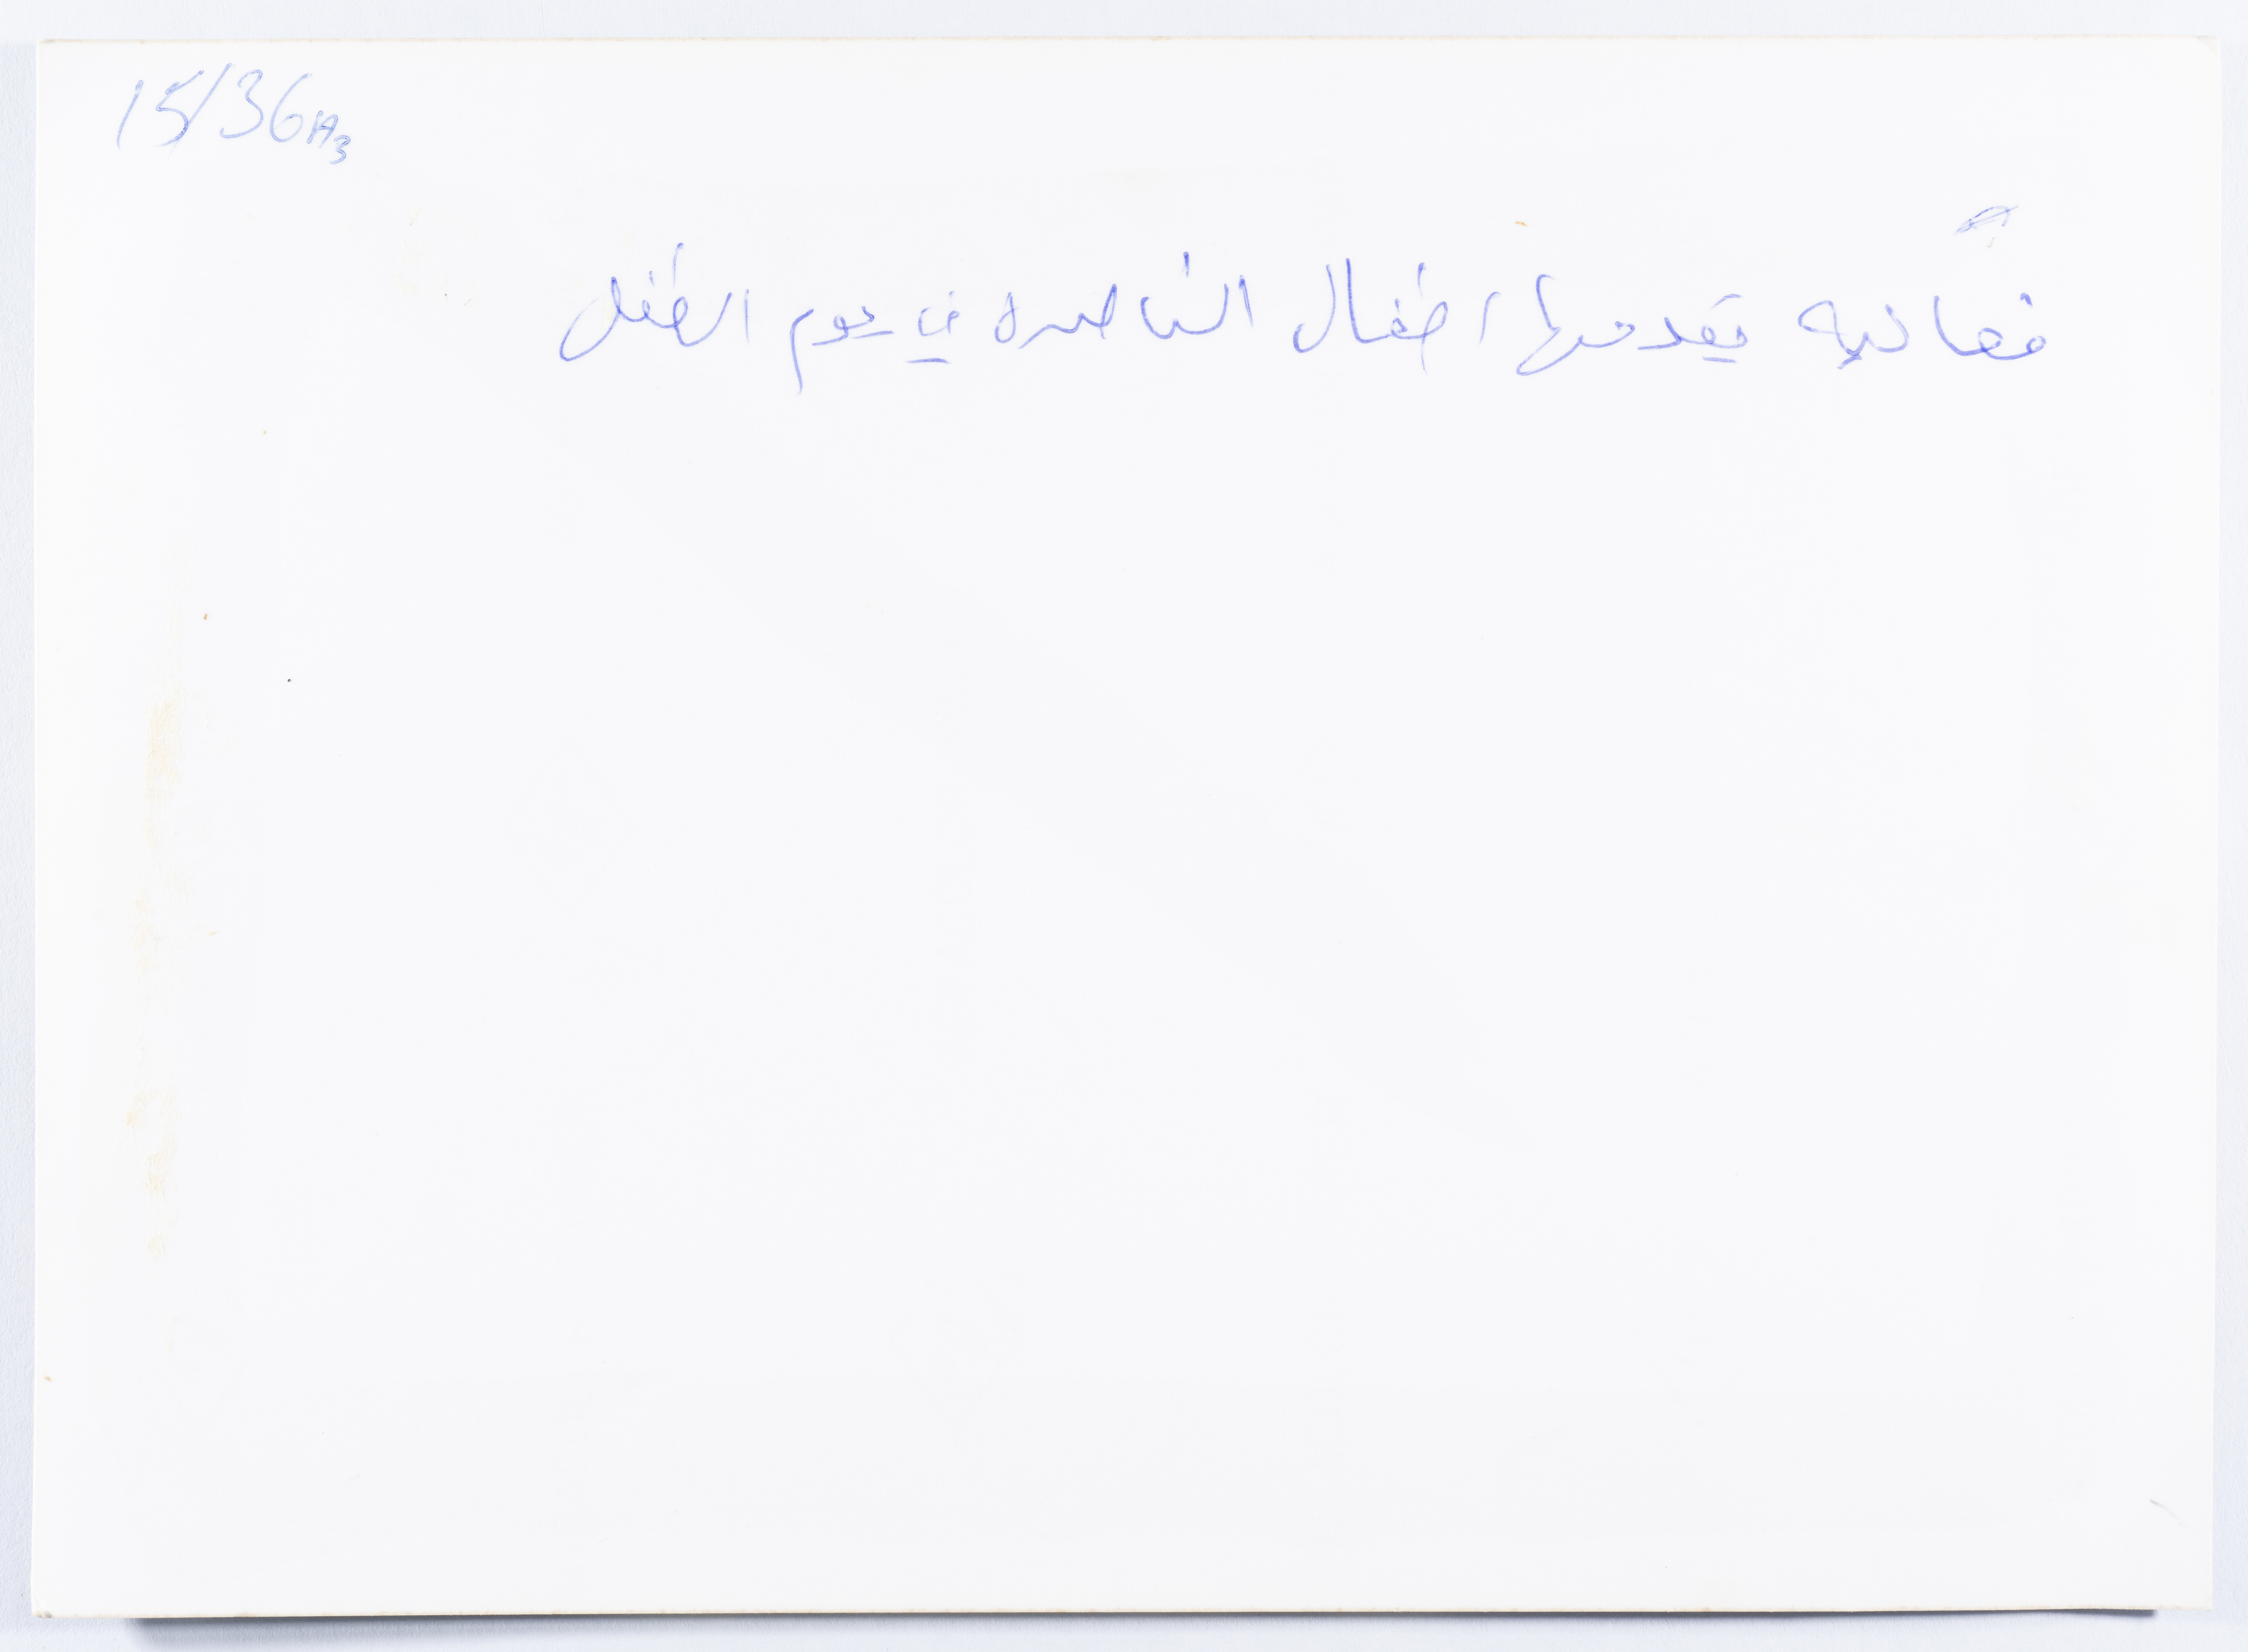 15/36A3
فعاليه يقدمها اطفال الناصره في يوم الطفل